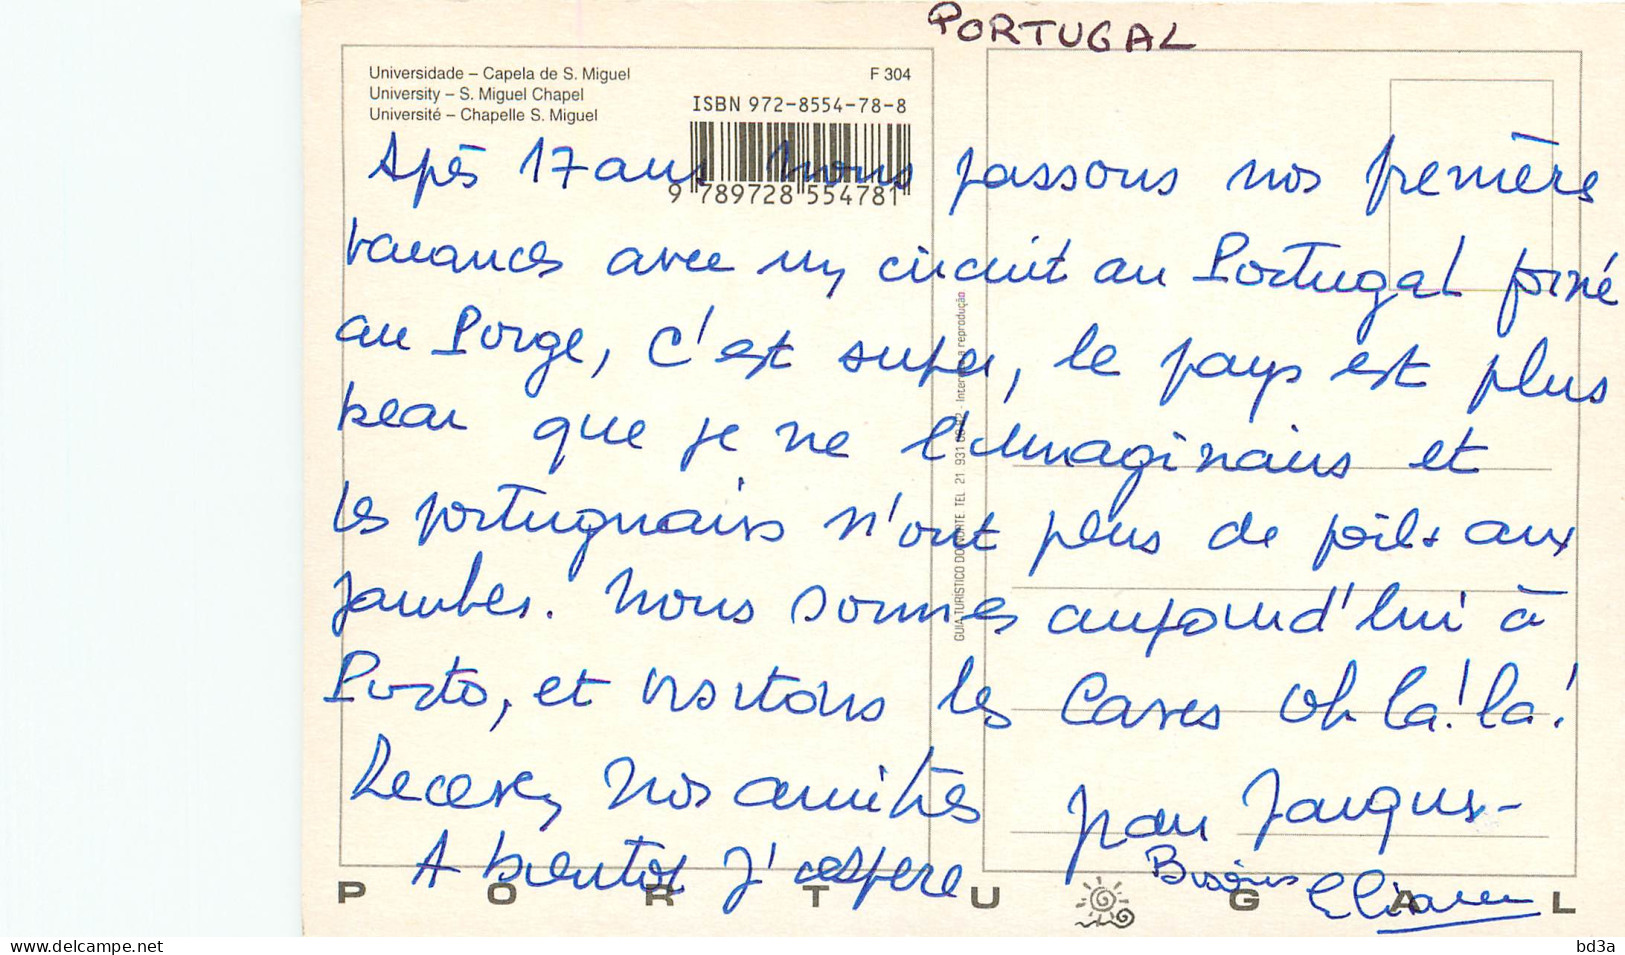 PORTUGAL
Universidade – Capela de S. Miguel
F 304
University – S. Miguel Chapel
Université – Chapelle S. Miguel
ISBN 972-8554-78-8
9 789728 554781
Après 17 ans nous passons nos première
vacances avec un circuit au Portugal formé
au Porge, c'est super, le pays est plus
beau que je ne l'imaginais et
les portuguais n'ont plus de poils aux
jambes. Nous sommes aujourd'hui à
Porto, et visitons les Caves oh la! la!
Recevez nos amitiés Jean Jacques-
A bientot j'espere Bisous Eliane
GUIA TURÍSTICO DO NORTE TEL 21 931 reprodução
PORTUGAL
www.delcampe.net
bd3a